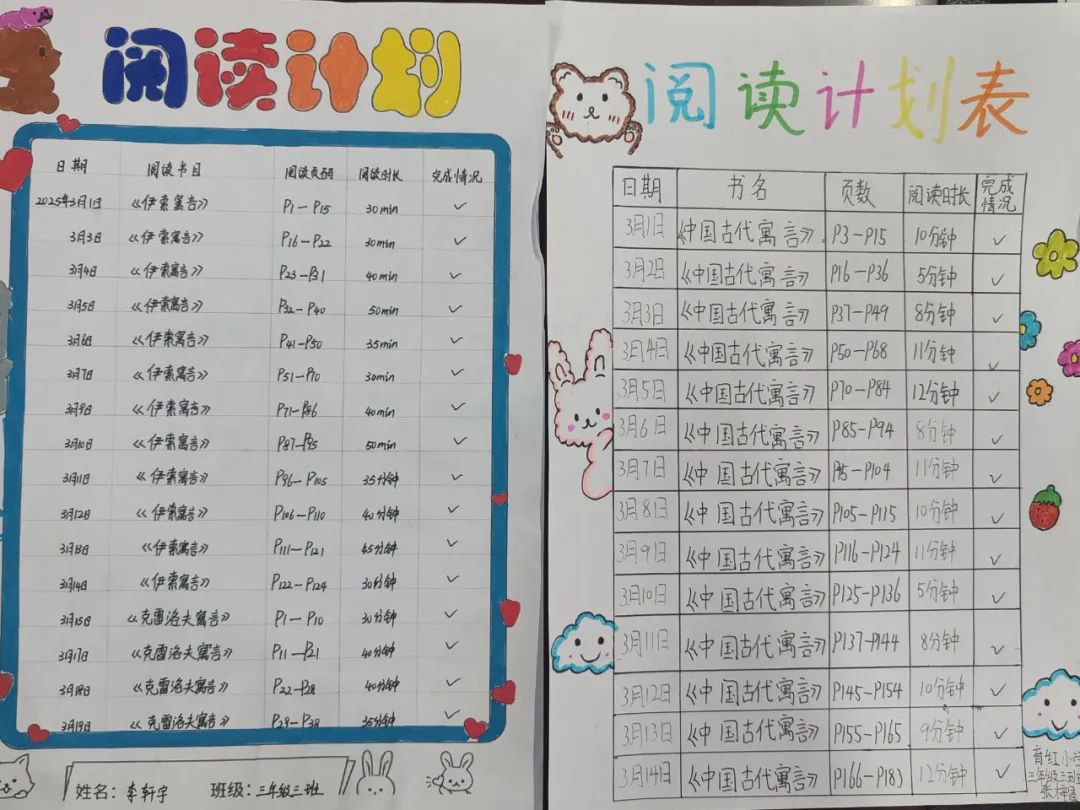 阅读计划
日期 阅读书目 阅读页码 阅读时长 完成情况
2025年3月1日 《伊索寓言》 P1—P15 30min ✓
3月3日 《伊索寓言》 P16—P22 30min ✓
3月4日 《伊索寓言》 P23—P31 40min ✓
3月5日 《伊索寓言》 P32—P40 50min ✓
3月6日 《伊索寓言》 P41—P50 35min ✓
3月7日 《伊索寓言》 P51—P70 30min ✓
3月9日 《伊索寓言》 P71—P86 40min ✓
3月10日 《伊索寓言》 P87—P95 50min ✓
3月11日 《伊索寓言》 P96—P105 35分钟 ✓
3月12日 《伊索寓言》 P106—P110 40分钟 ✓
3月13日 《伊索寓言》 P111—P121 45分钟 ✓
3月14日 《伊索寓言》 P122—P124 30分钟 ✓
3月15日 《克雷洛夫寓言》 P1—P10 30分钟 ✓
3月17日 《克雷洛夫寓言》 P11—P21 40分钟 ✓
3月18日 《克雷洛夫寓言》 P22—P28 40分钟 ✓
3月19日 《克雷洛夫寓言》 P29—P38 35分钟 ✓
姓名：李轩宇 班级：三年级三班
阅读计划表
日期 书名 页数 阅读时长 完成情况
3月1日 《中国古代寓言》 P3—P15 10分钟 ✓
3月2日 《中国古代寓言》 P16—P36 5分钟 ✓
3月3日 《中国古代寓言》 P37—P49 8分钟 ✓
3月4日 《中国古代寓言》 P50—P68 11分钟 ✓
3月5日 《中国古代寓言》 P70—P84 12分钟 ✓
3月6日 《中国古代寓言》 P85—P94 8分钟 ✓
3月7日 《中国古代寓言》 P95—P104 11分钟 ✓
3月8日 《中国古代寓言》 P105—P115 10分钟 ✓
3月9日 《中国古代寓言》 P116—P124 11分钟 ✓
3月10日 《中国古代寓言》 P125—P136 5分钟 ✓
3月11日 《中国古代寓言》 P137—P144 8分钟 ✓
3月12日 《中国古代寓言》 P145—P154 10分钟 ✓
3月13日 《中国古代寓言》 P155—P165 9分钟 ✓
3月14日 《中国古代寓言》 P166—P183 12分钟 ✓
育红小学
三年级三班